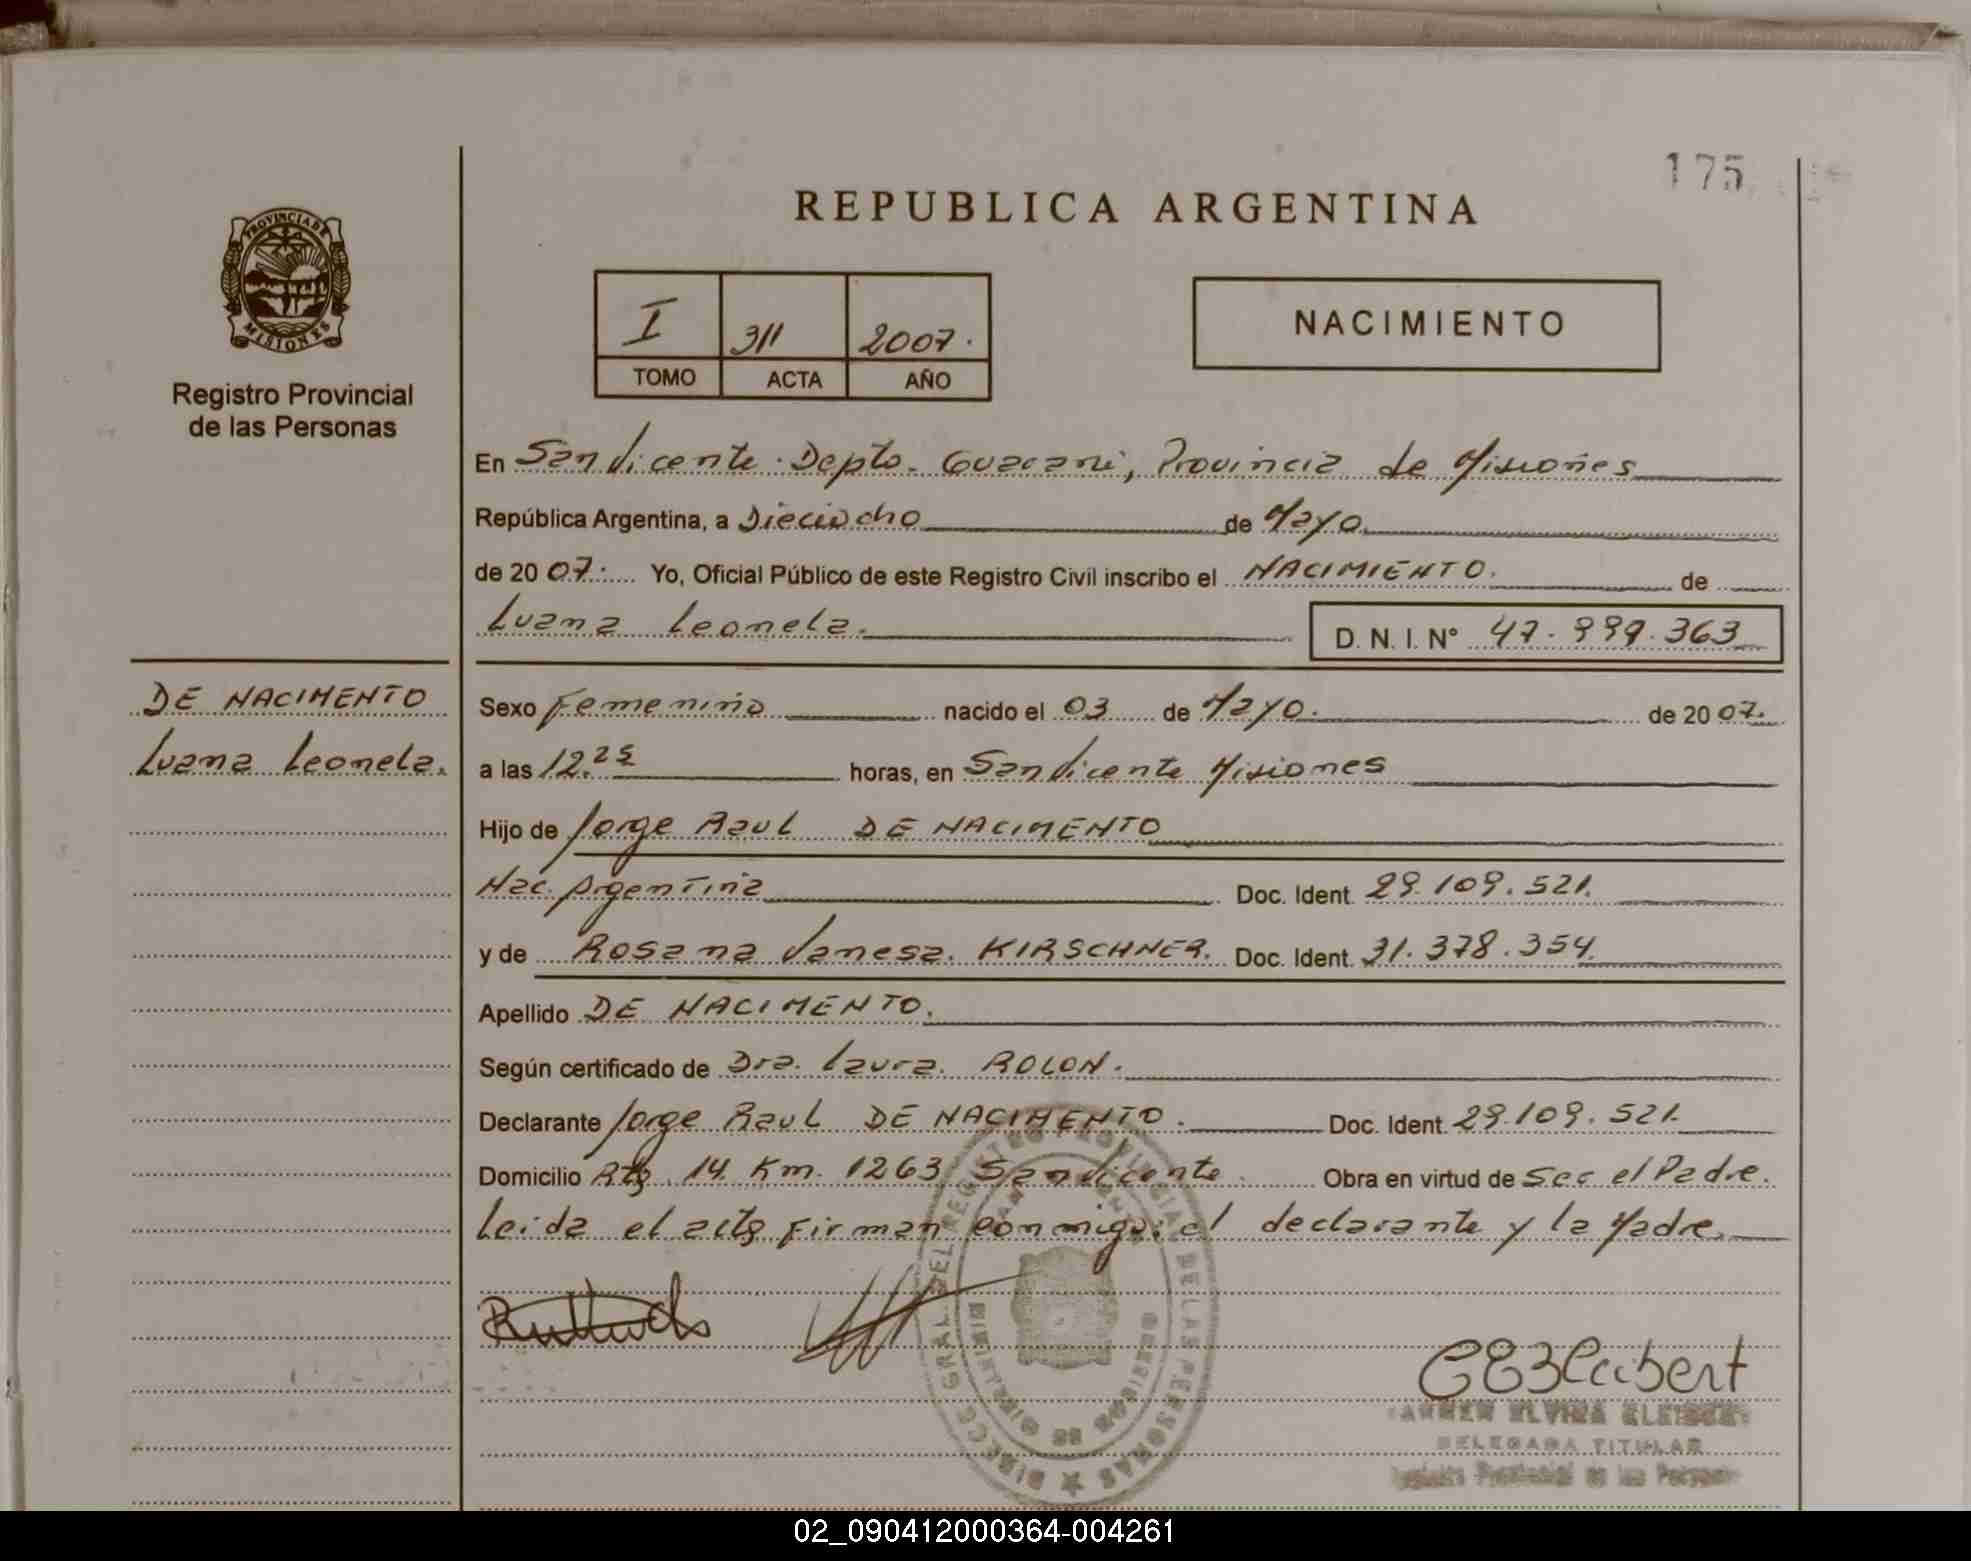 175
REPUBLICA ARGENTINA
PROVINCIA DE
MISIONES
Registro Provincial
de las Personas
I 311 2007.
TOMO ACTA AÑO
NACIMIENTO
En San Vicente. Depto. Guarani, Provincia de Misiones
República Argentina, a Dieciocho de Mayo
de 2007. Yo, Oficial Público de este Registro Civil inscribo el NACIMIENTO. de
Luana Leonela.
D. N. I. N° 47.999.363
DE NACIMENTO
Luana Leonela.
Sexo Femenino nacido el 03 de Mayo. de 2007.
a las 12.25 horas, en San Vicente Misiones
Hijo de Jorge Raul DE NACIMENTO
Nac. Argentina Doc. Ident. 29.109.521.
y de Rosana Vanesa. KIRSCHNER. Doc. Ident. 31.378.354.
Apellido DE NACIMENTO.
Según certificado de Dra. Laura. ROLON.
Declarante Jorge Raul DE NACIMENTO. Doc. Ident. 29.109.521.
Domicilio Rta. 14. Km. 1263 San Vicente. Obra en virtud de Ser el Padre.
Leida el acta firman conmigo: el declarante y la Madre.
DIRECC. GRAL. DEL REGISTRO PROVINCIAL DE LAS PERSONAS
DELEGADA TITULAR
Registro Provincial de las Personas
02_090412000364-004261